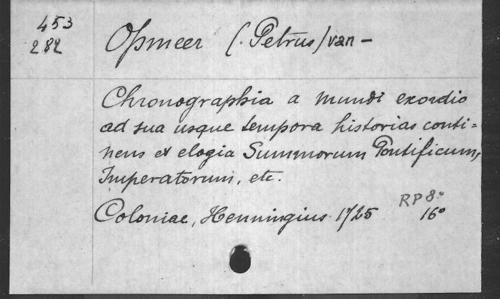 453
282
Opmeer (Petrus) van -
Chronographia a mundi exordio
ad sua usque tempora historias conti=
nens et elogia Summorum Pontificum,
Imperatorum, etc.
RP 8º
Coloniae, Henningius 1725 16º